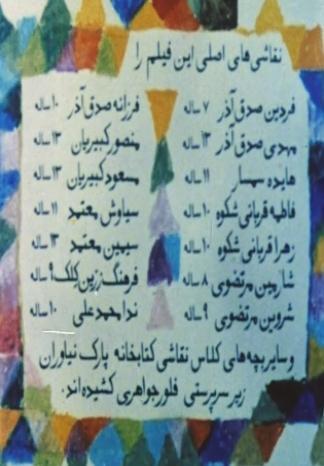 نقاشی‌های اصلی این فیلم را
فردین صدق آذر ۷ ساله
فرزانه صدق آذر ۱۰ ساله
مهدی صدق آذر ۱۳ ساله
منصور کبیریان ۱۳ ساله
هایده سمسار ۱۱ ساله
مسعود کبیریان ۱۳ ساله
فاطمه قربانی شکوه ۱۰ ساله
سیاوش معتمد ۱۱ ساله
زهرا قربانی شکوه ۱۰ ساله
سیمین معتمد ۱۳ ساله
شارمین مرتضوی ۸ ساله
فرهنگ زرین کلک ۹ ساله
شروین مرتضوی ۹ ساله
ندا محمدعلی ۱۰ ساله
و سایر بچه‌های کلاس نقاشی کتابخانه پارک نیاوران
زیر سرپرستی فلور جواهری کشیده‌اند.